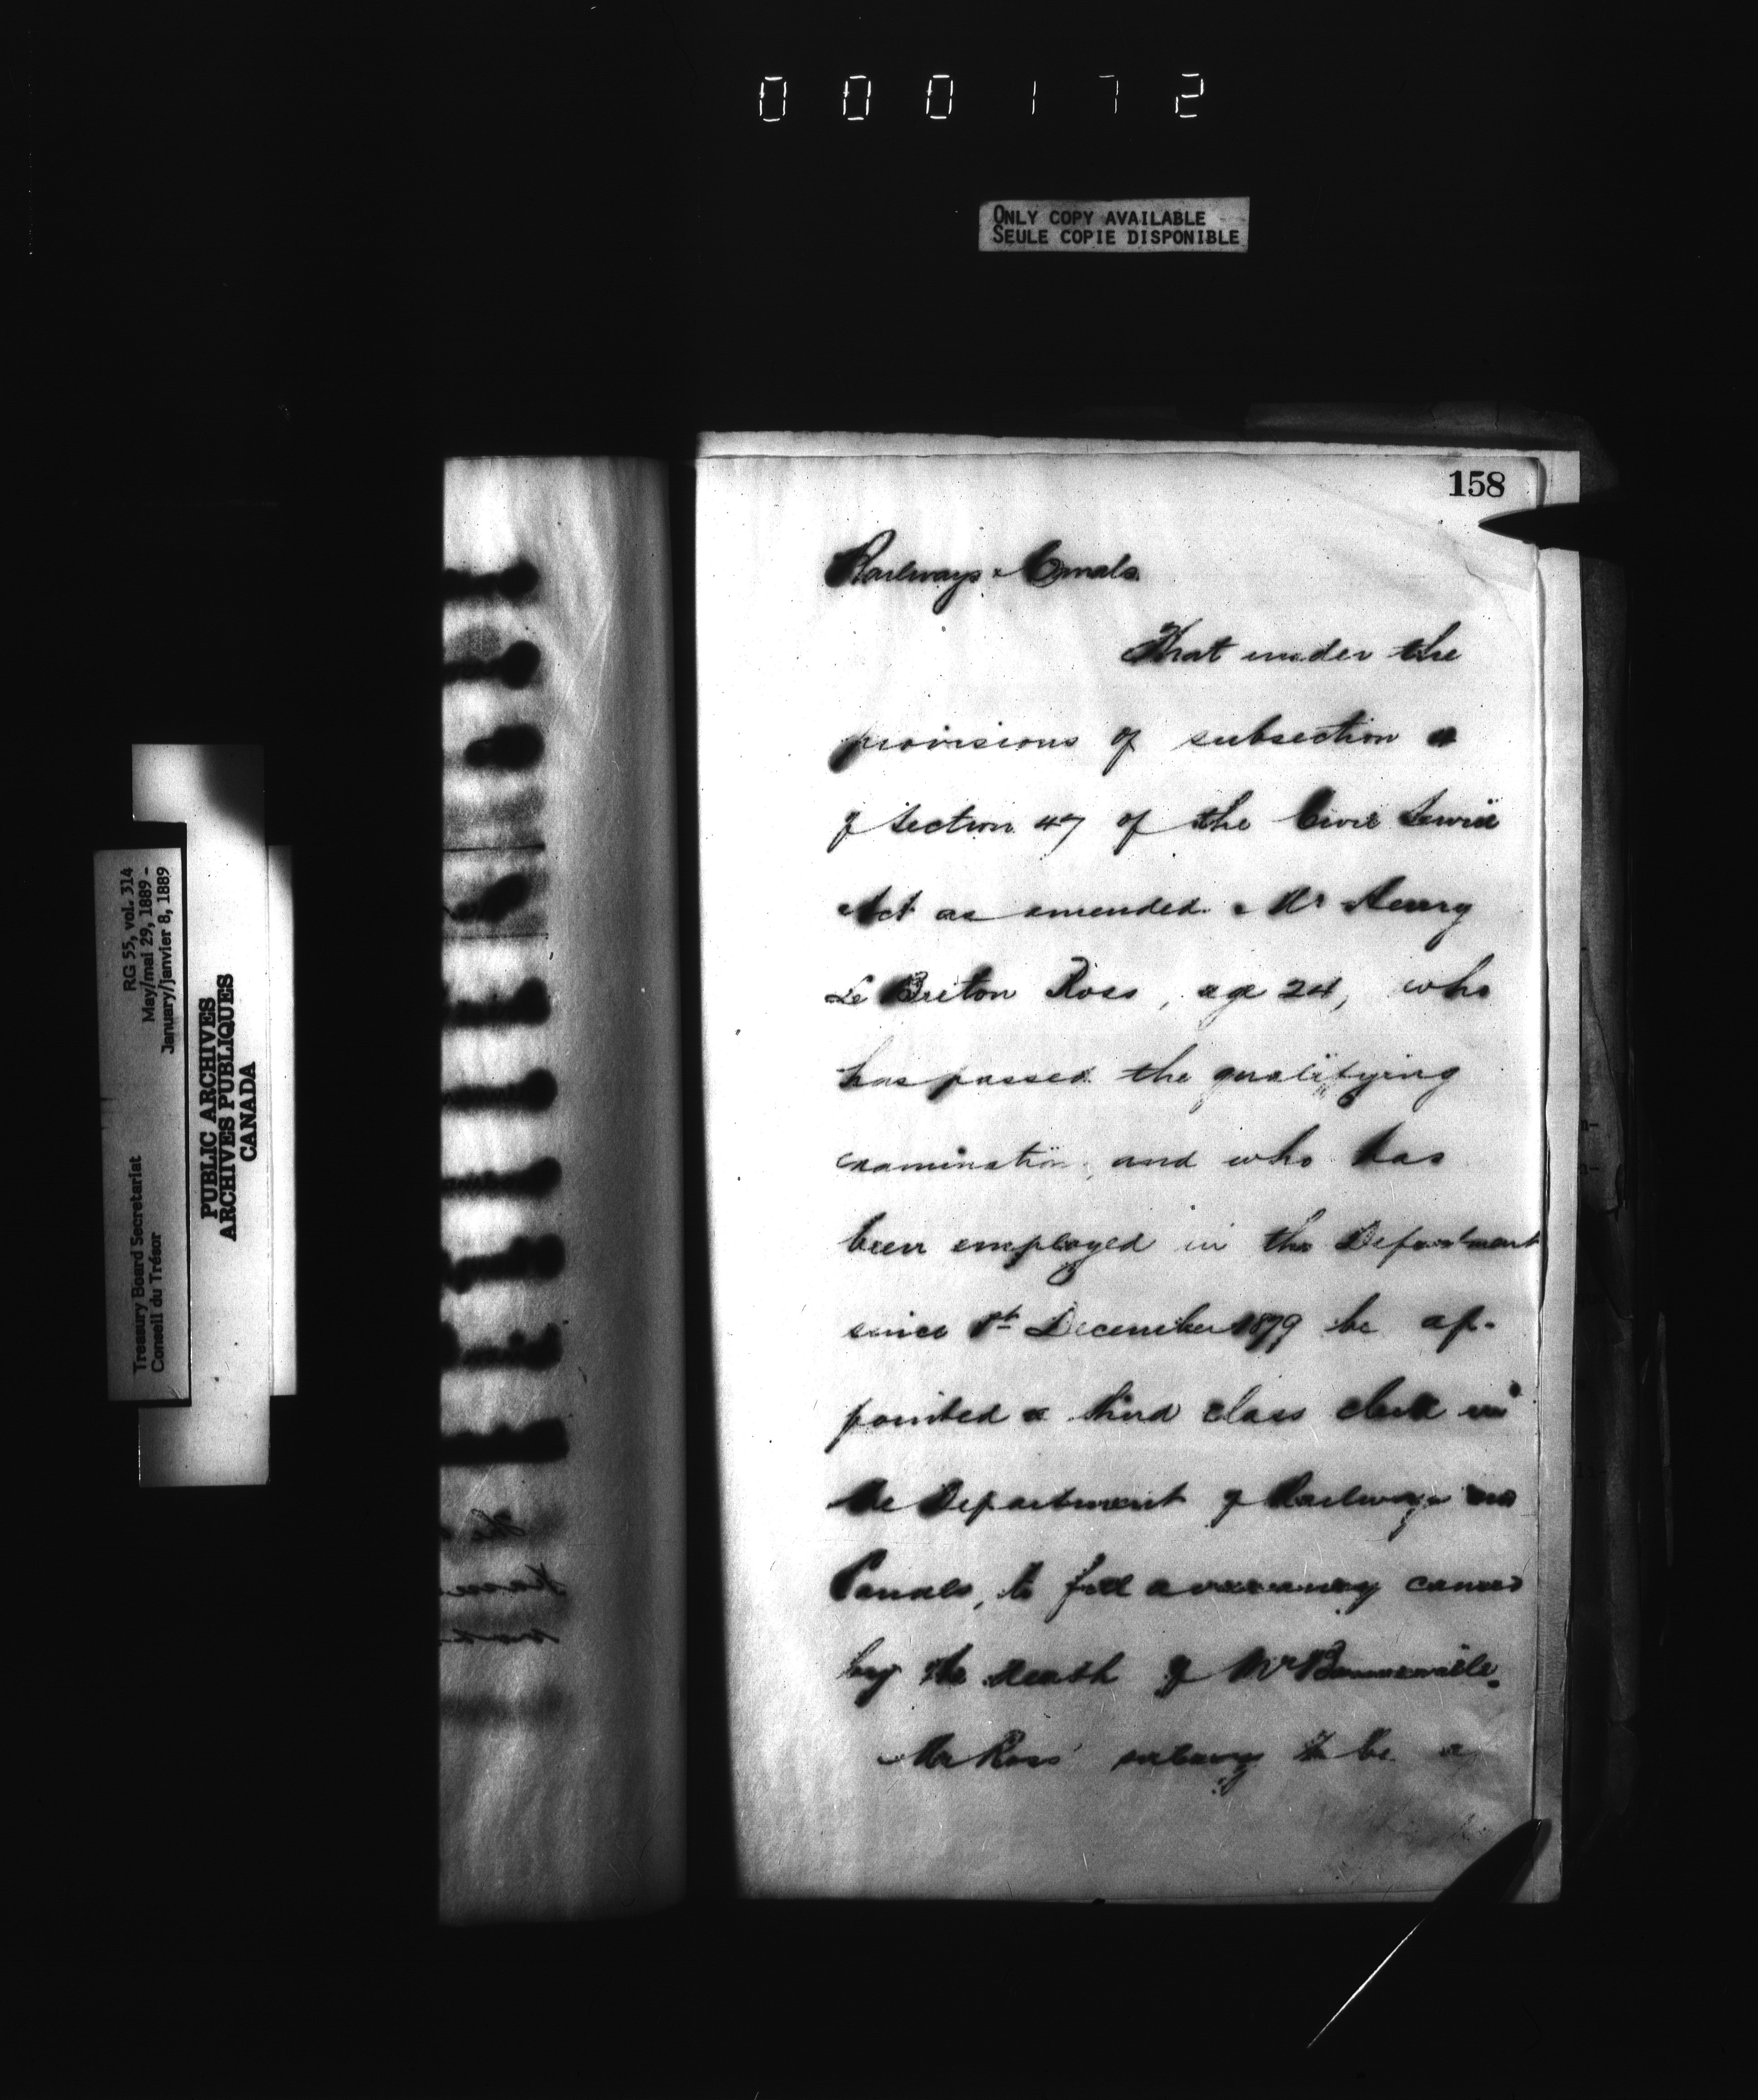 000172
ONLY COPY AVAILABLE
SEULE COPIE DISPONIBLE
RG 55, vol. 314
May/mai 29, 1889 -
January/janvier 8, 1889
Treasury Board Secretariat
Conseil du Trésor
PUBLIC ARCHIVES
ARCHIVES PUBLIQUES
CANADA
158
Railways & Canals
That under the
provisions of subsection a
of Section 47 of the Civil Service
Act as amended Mr Henry
Le Breton Ross, age 24, who
has passed the qualifying
examination, and who has
been employed in the Department
since 1st December 1879 be ap-
pointed a third class clerk in
the Department of Railways and
Canals, to fill a vacancy caused
by the death of Mr
Mr Ross' salary to be a